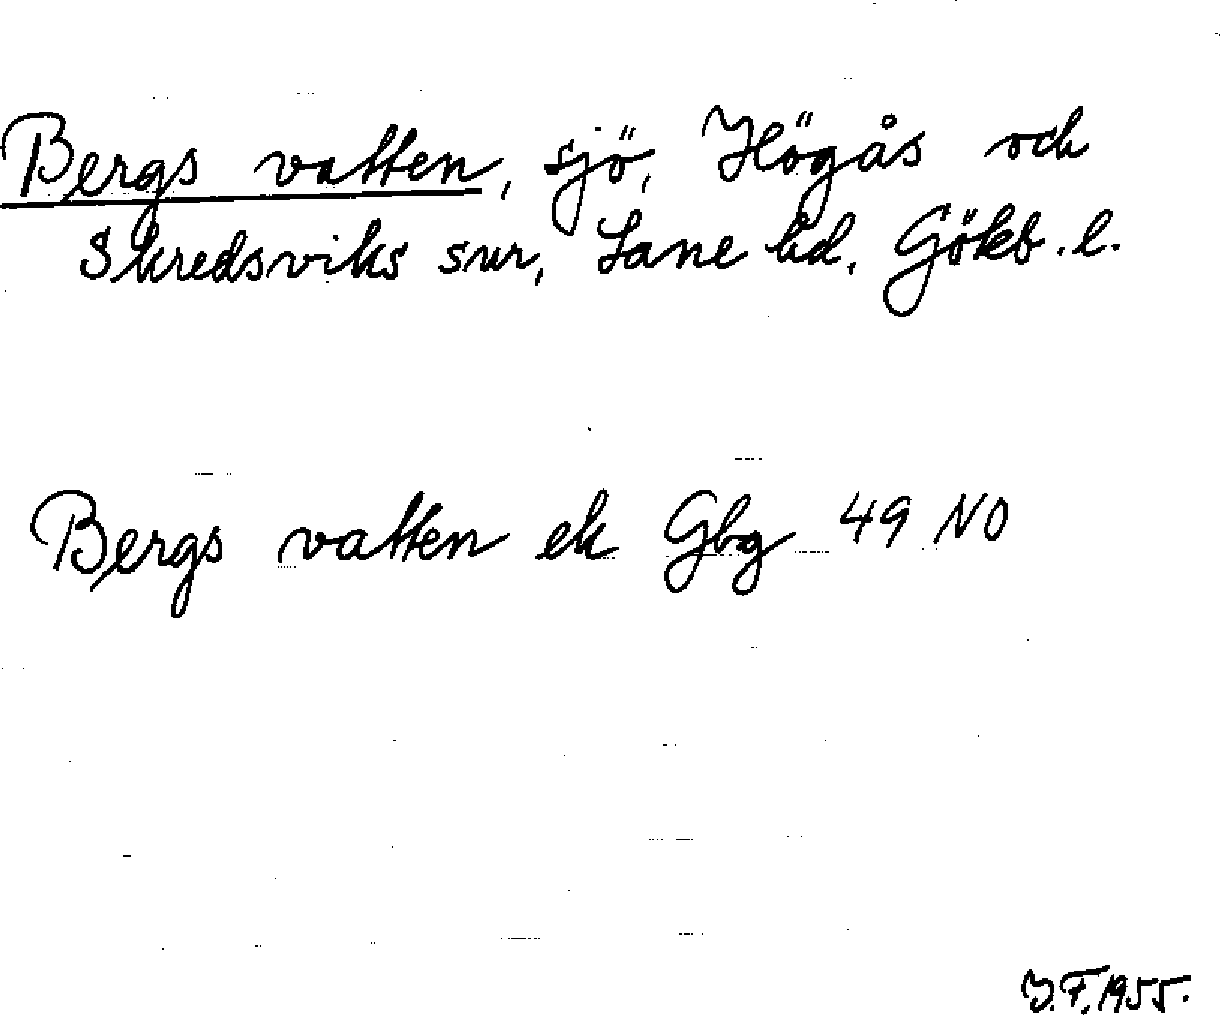 Bergs vatten, sjö, Högås och
Skredsviks snr, Lane hd, Gökb. l.
Bergs vatten ek Gbg 49 NO
J.F. 1955.